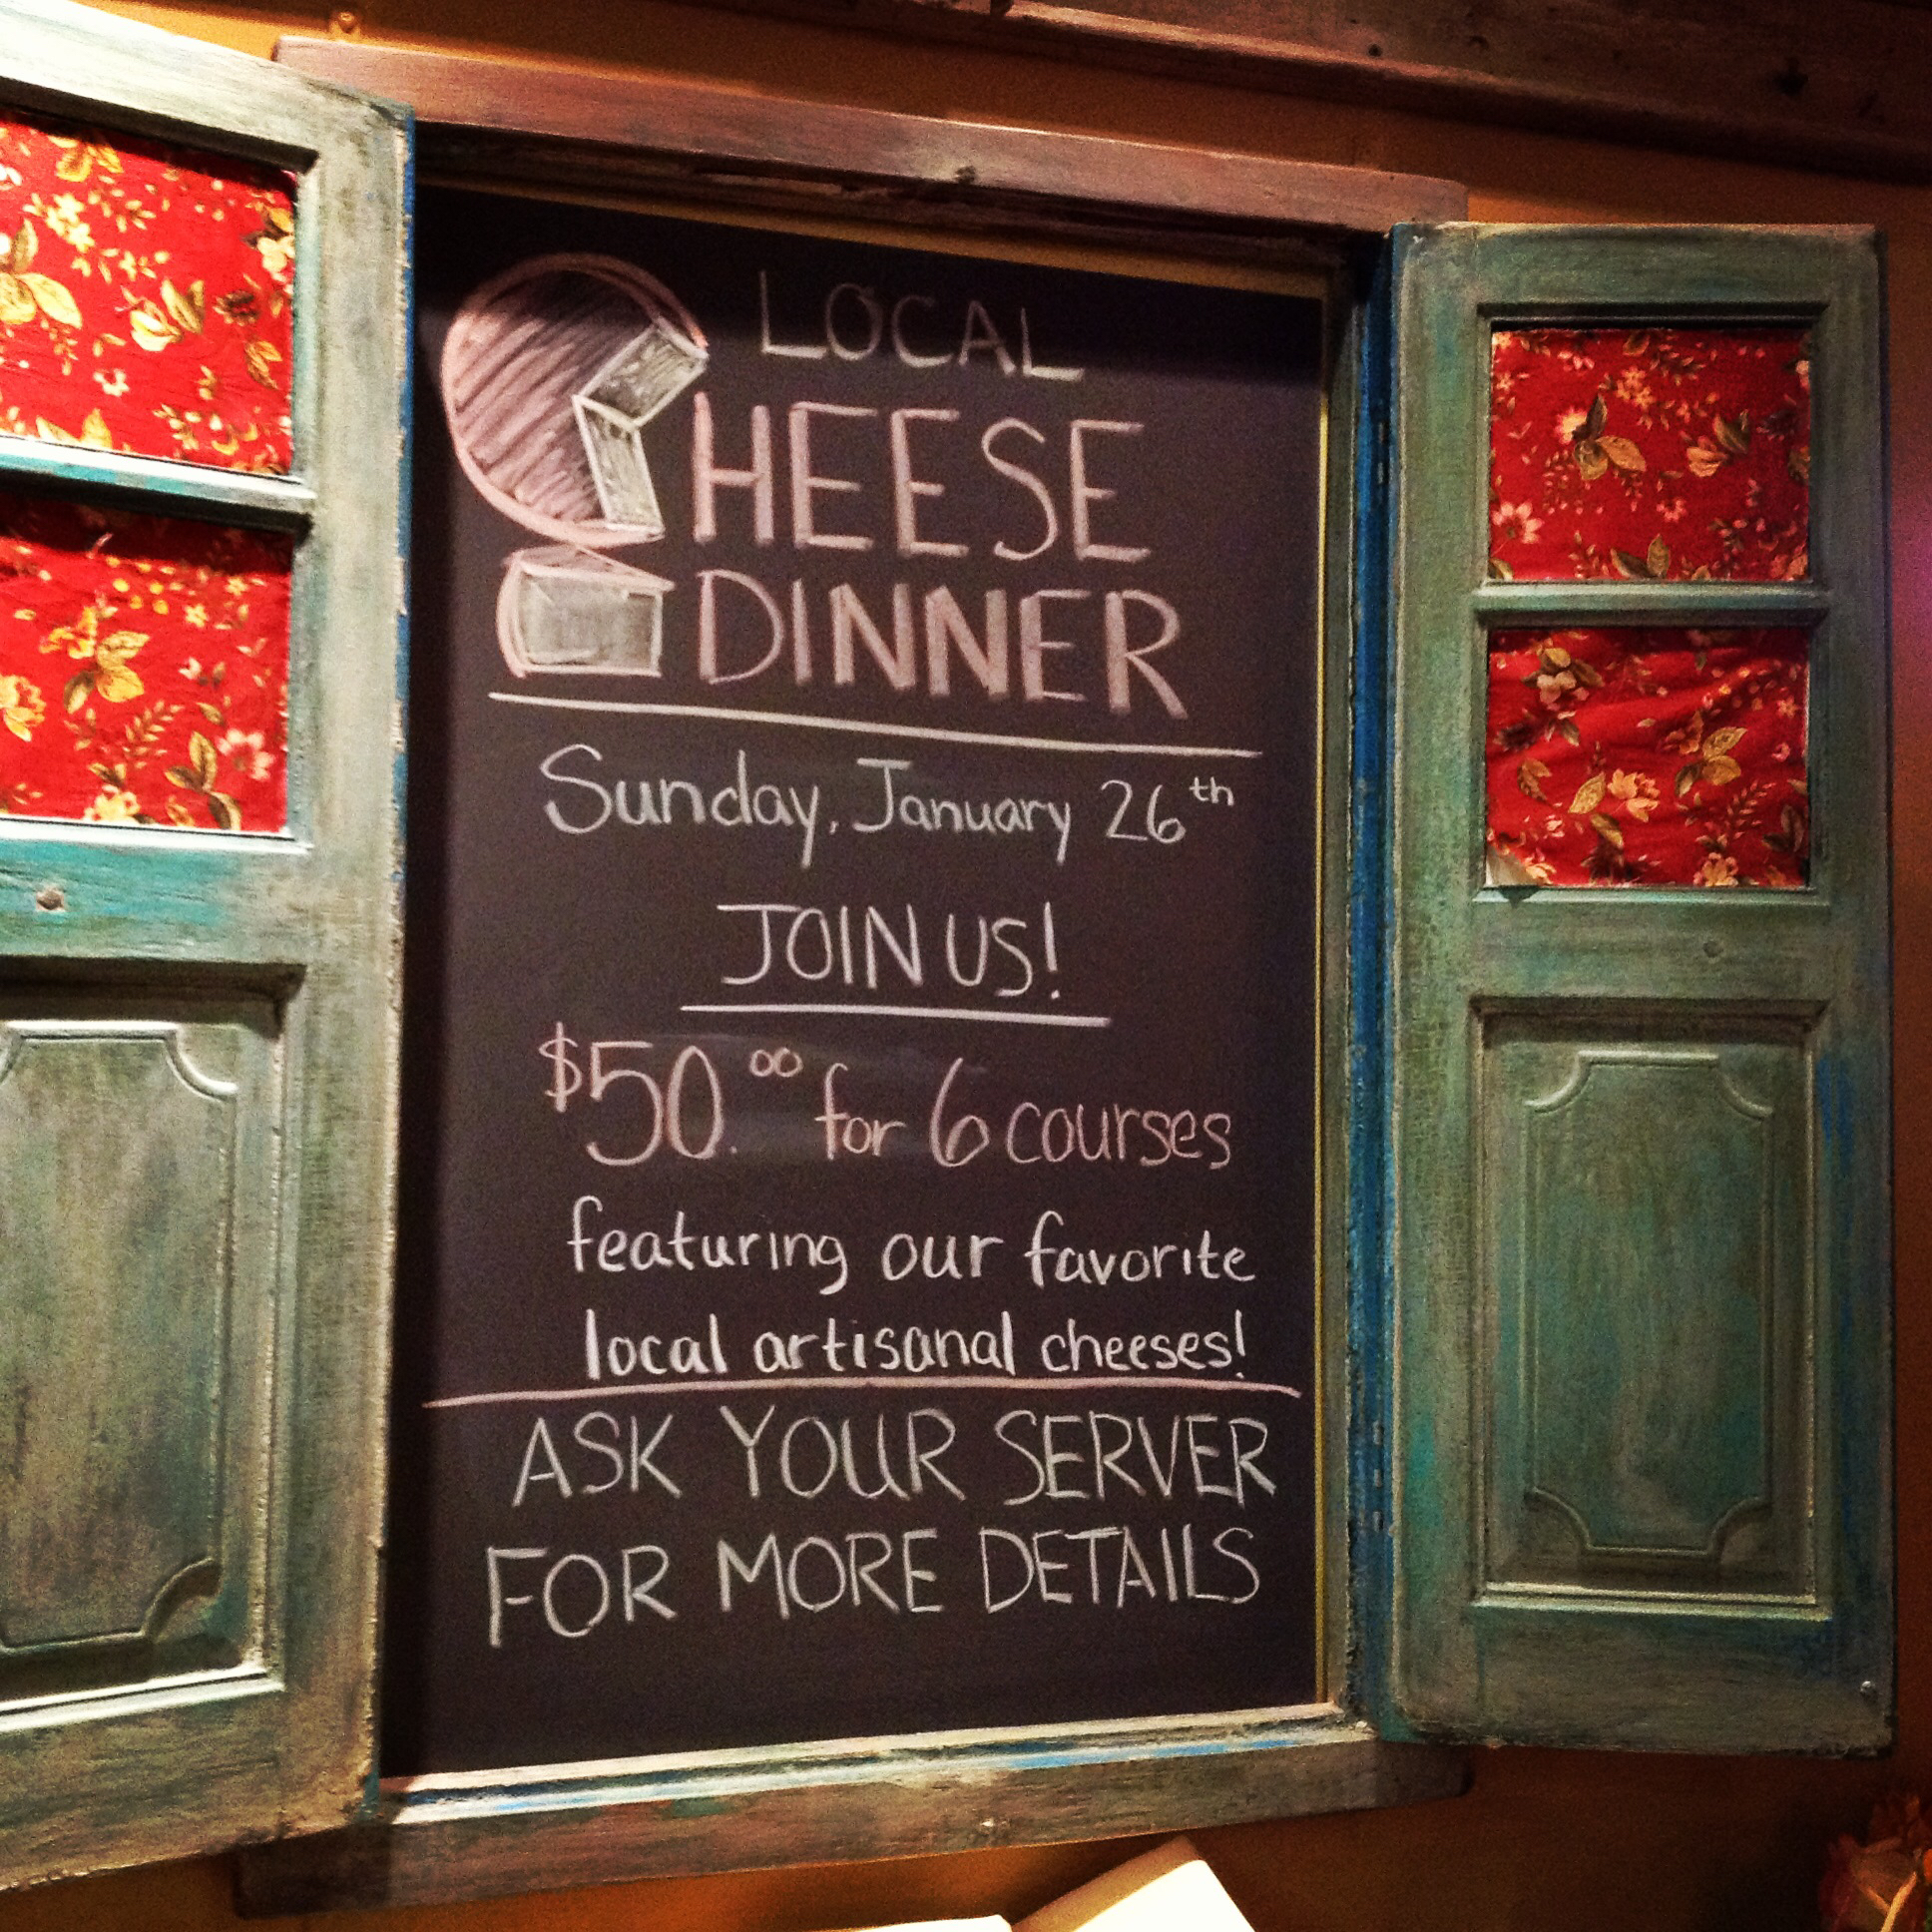 LOCAL
CHEESE
DINNER
Sunday, January 26th
JOIN US!
$50.00 for 6 courses
featuring our favorite
local artisanal cheeses!
ASK YOUR SERVER
FOR MORE DETAILS